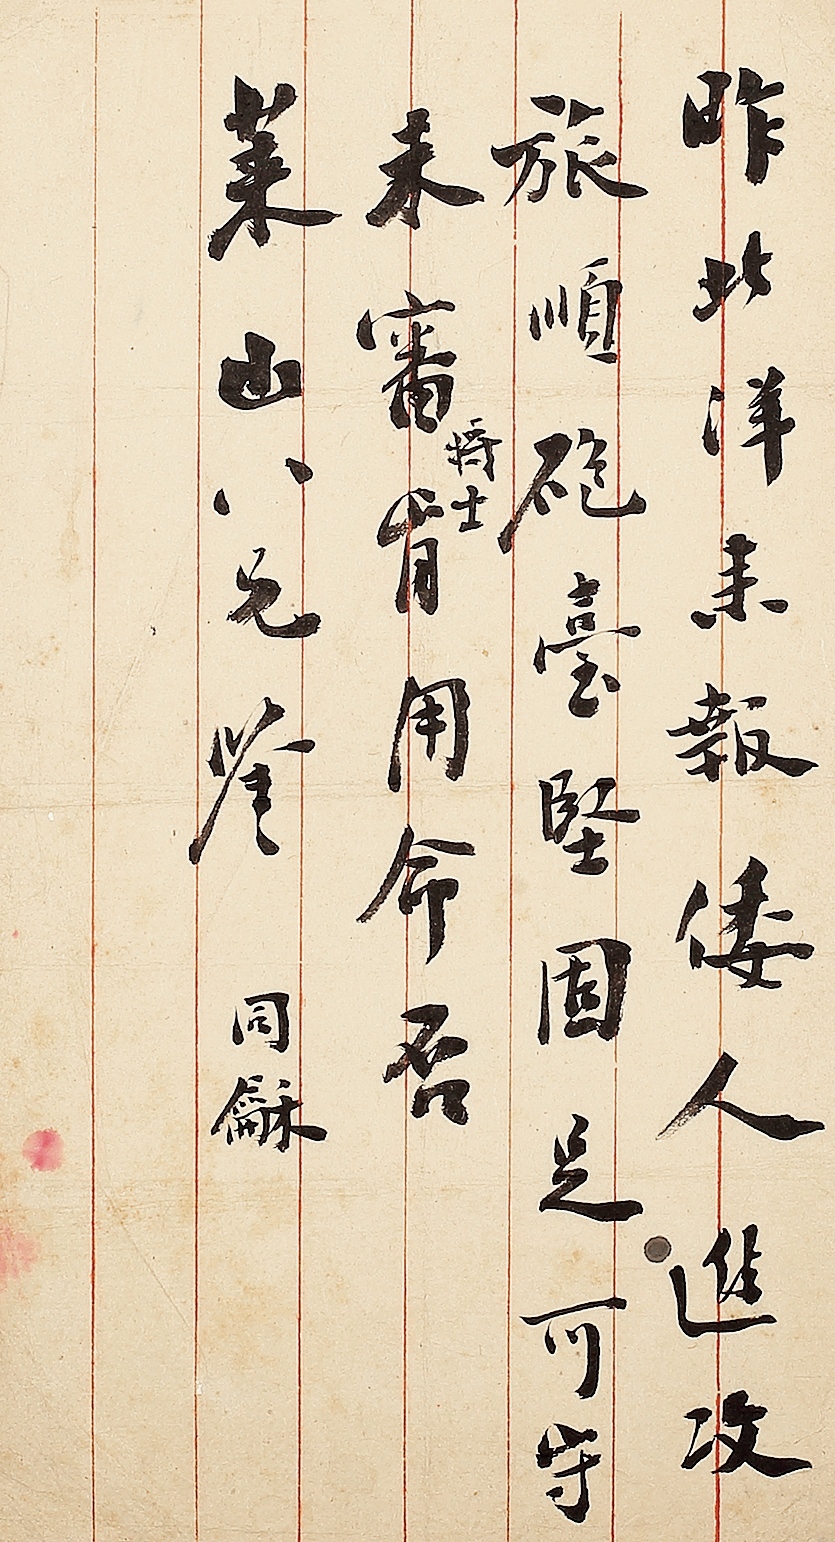 昨北洋来報倭人進攻
旅順砲臺堅固足可守
未審将士肯用命否
萊山八兄鑒 同龢